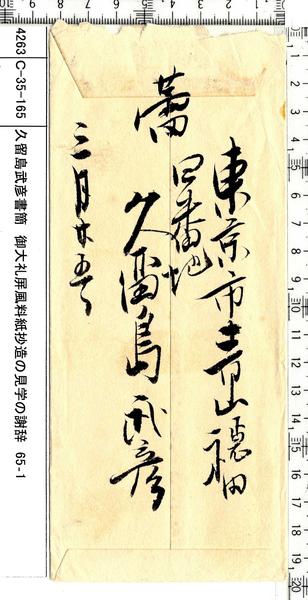 4263 C-35-165 久留島武彦書簡 御大礼屏風料紙抄造の見学の謝辞 65-1
東京市青山穏田
四番地
久留島武彦
三月廿五